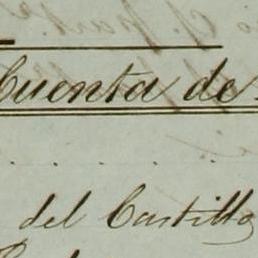 Cuenta de
del Castillo